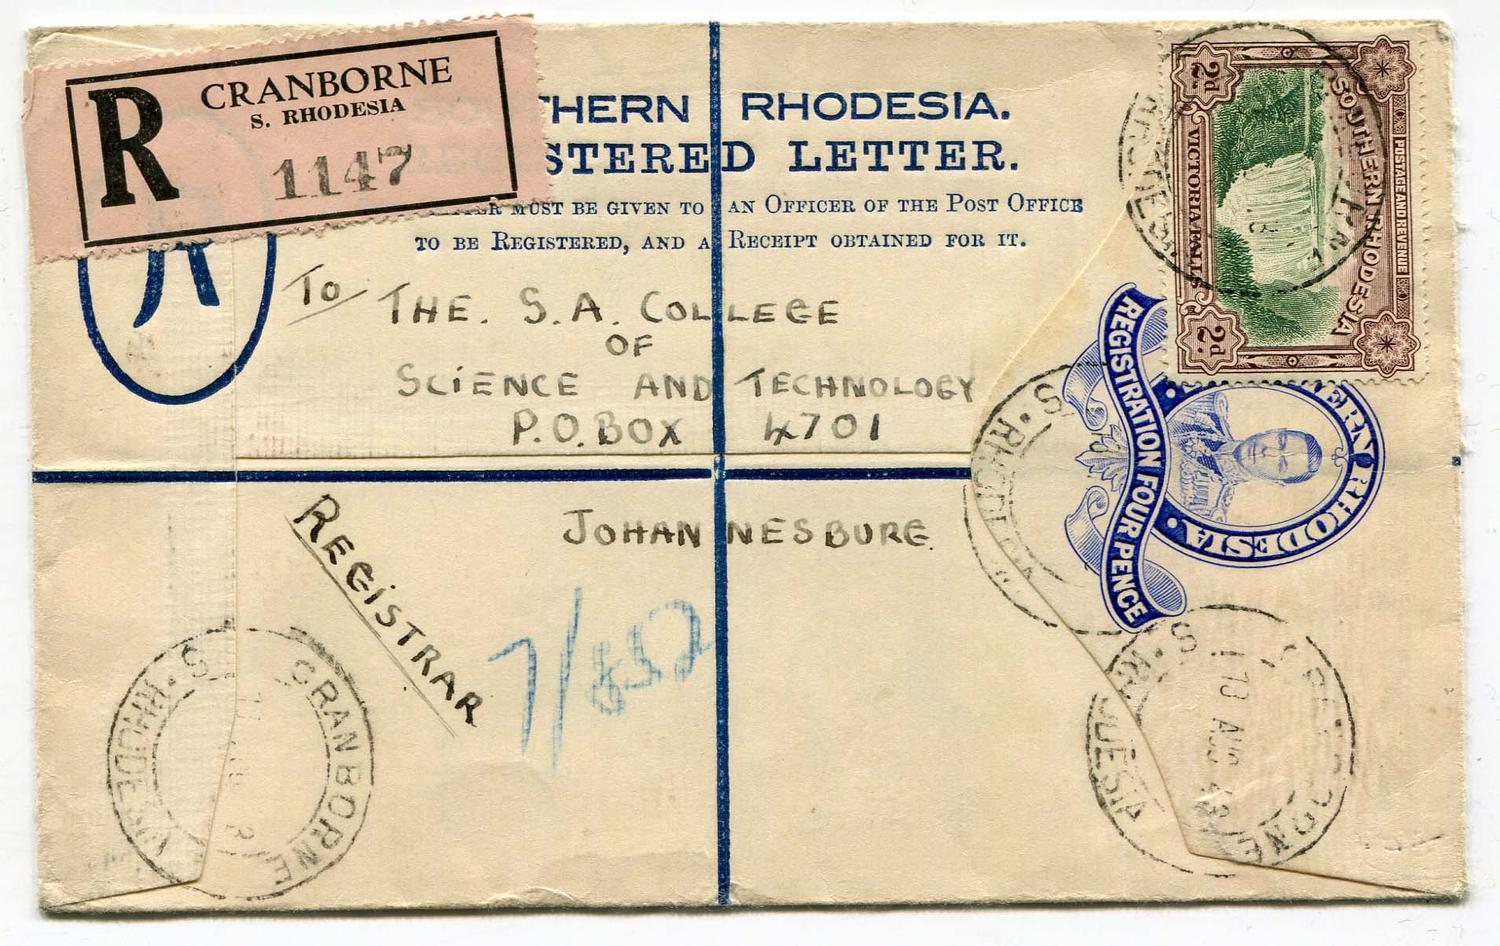 R
CRANBORNE
S. RHODESIA
1147
THERN RHODESIA.
STERED LETTER.
MUST BE GIVEN TO AN OFFICER OF THE POST OFFICE
TO BE REGISTERED, AND A RECEIPT OBTAINED FOR IT.
To
THE. S.A. COLLEGE
OF
SCIENCE AND TECHNOLOGY
P.O. BOX 4701
JOHANNESBURG.
REGISTRAR
7/852
2d.
SOUTHERN RHODESIA
POSTAGE AND REVENUE
VICTORIA FALLS
2d.
REGISTRATION FOUR PENCE
ERN RHODESIA
CRANBORNE
S. RHODESIA
S. RHODESIA
13 AUG 43